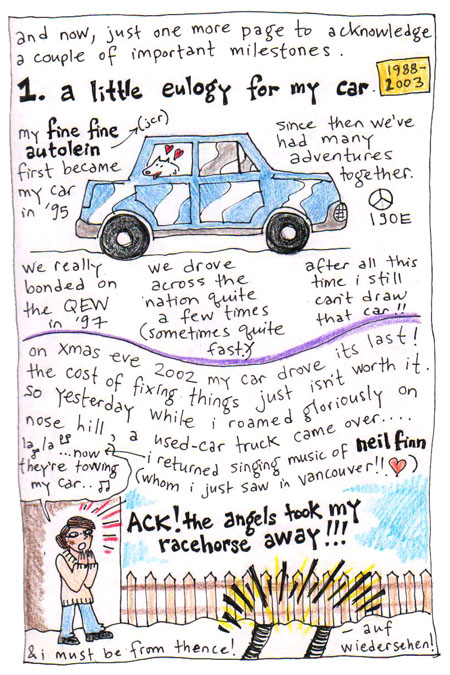 and now, just one more page to acknowledge
a couple of important milestones.
1. a little eulogy for my car.
1988-
2003
my fine fine
autolein
first became
my car
in '95
(jcr)
since then we've
had many
adventures
together.
190E
we really
bonded on
the QEW
in '97
we drove
across the
nation quite
a few times
(sometimes quite
fast.)
after all this
time i still
can't draw
that car!!
on xmas eve 2002 my car drove its last!
the cost of fixing things just isn't worth it.
so yesterday while i roamed gloriously on
nose hill, a used-car truck came over....
i returned singing music of neil finn
(whom i just saw in vancouver!! )
la, la
...now
they're towing
my car..
ACK! the angels took my
racehorse away!!!
& i must be from thence!
– auf
wiedersehen!